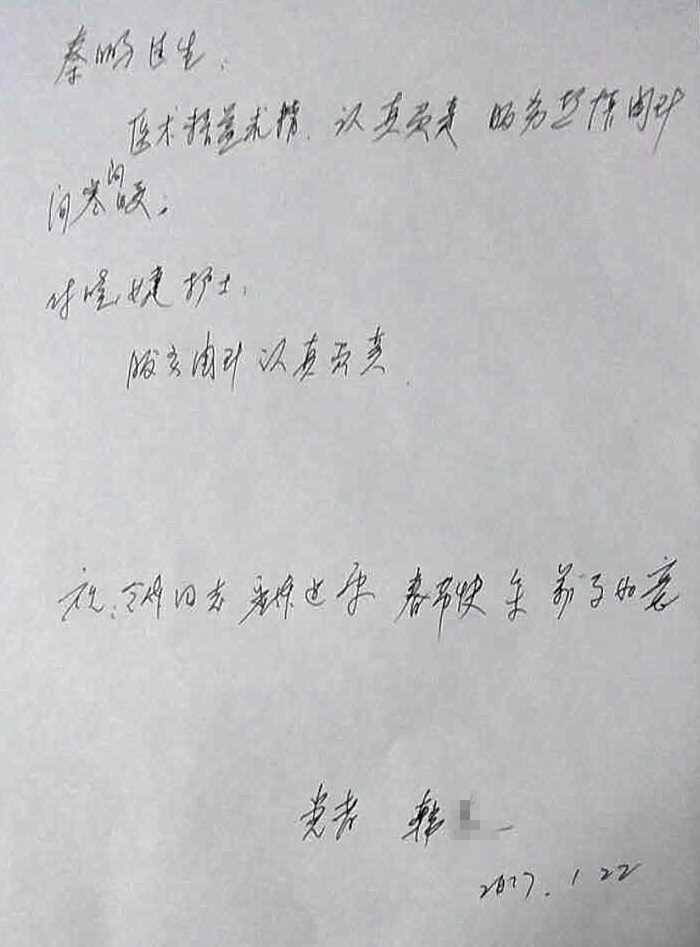 秦鹏医生：
医术精益求精，认真负责 服务热情周到
问寒问暖；
付晓婕护士：
服务周到 认真负责.
祝：全体同志 身体健康 春节快乐 万事如意
患者 韩
2017.1.22